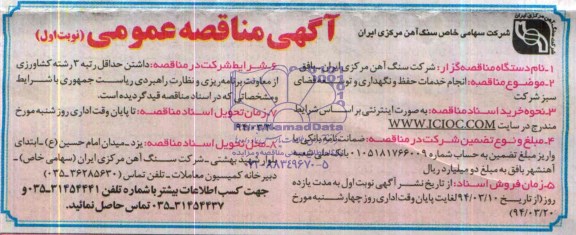 شرکت سهامی خاص سنگ آهن مرکزی ایران
آگهی مناقصه عمومی (نوبت اول)
۱ـ نام دستگاه مناقصه گزار: شرکت سنگ آهن مرکزی ایران ـ بافق
۲ـ موضوع مناقصه: انجام خدمات حفظ و نگهداری و توسعه فضای
سبز شرکت
۳ـ نحوه خرید اسناد مناقصه: به صورت اینترنتی بر اساس شرایط
مندرج در سایت WWW.ICIOC.COM
۴ـ مبلغ و نوع تضمین شرکت در مناقصه: ضمانت نامه بانکی یا
واریز مبلغ تضمین به حساب شماره ۰۱۰۵۱۸۱۷۶۶۰۰۹ بانک ملی شعبه
آهنشهر بافق به مبلغ دو میلیارد ریال
۵ـ زمان فروش اسناد: از تاریخ نشر آگهی نوبت اول به مدت یازده
روز (از تاریخ ۹۴/۰۳/۱۰ لغایت پایان وقت اداری روز چهارشنبه مورخ
۹۴/۰۳/۲۰)
۶ـ شرایط شرکت در مناقصه: داشتن حداقل رتبه ۳ رشته کشاورزی
از معاونت برنامه ریزی و نظارت راهبردی ریاست جمهوری با شرایط
و مشخصاتی که در اسناد مناقصه قید گردیده است.
۷ـ زمان تحویل اسناد مناقصه: تا پایان وقت اداری روز شنبه مورخ
۸ـ محل تحویل اسناد مناقصه: یزد ـ میدان امام حسین (ع) ـ ابتدای
بلوار شهید بهشتی ـ شرکت سنگ آهن مرکزی ایران (سهامی خاص) ـ
دبیرخانه کمیسیون معاملات ـ تلفن تماس (۳۶۲۸۵۶۳۰-۰۳۵)
جهت کسب اطلاعات بیشتر با شماره تلفن ۳۱۴۵۴۴۴۱-۰۳۵ و
۳۱۴۵۴۴۳۷-۰۳۵ تماس حاصل نمائید.